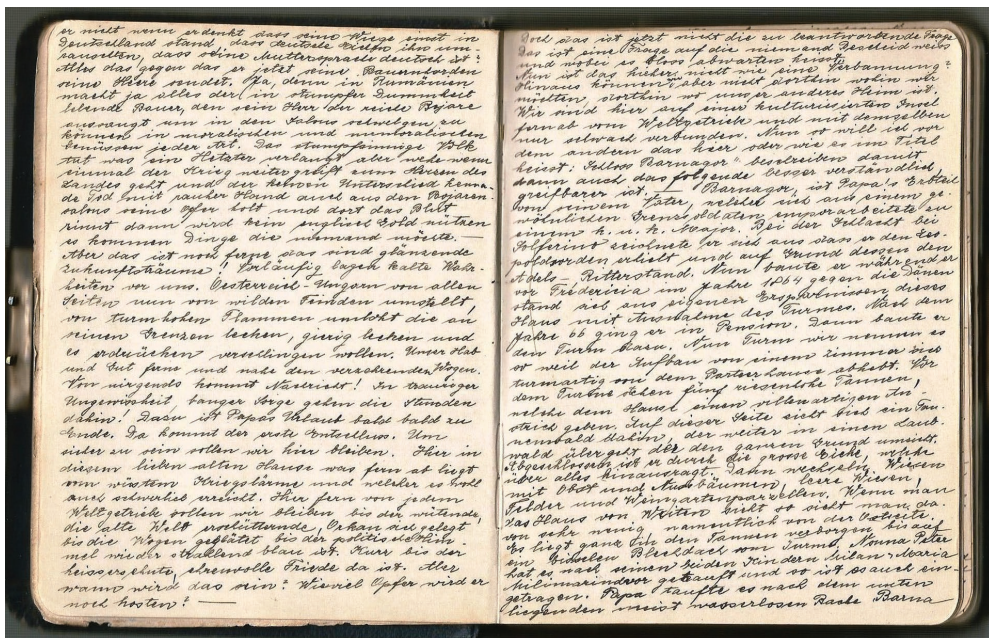 er nicht wenn er denkt dass seine Wiege einst in
Deutschland stand, dass deutsche Eichen ihn um-
rauschten, dass seine Muttersprache deutsch ist?
Alles das gegen das er jetzt seine Bauernhorden
seine Heere sendet. Ja, denn in Rumänien
macht ja alles der in stumpfer Dummheit
lebende Bauer, den sein Herr der reiche Bojare
aussaugt um in den Salons schwelgen zu
können in moralischen und unmoralischen
Genüssen jeder Art. Das stumpfsinnige Volk
tut was ein Hetzter verlangt aber wehe wenn
einmal der Krieg weiter greift zum Herzen des
Landes geht und der keinen Unterschied kennen-
de Tod mit rauher Hand auch aus den Bojaren-
salons seine Opfer holt und dort das Blut
rinnt dann wird kein englisch Gold nützen
es kommen Dinge die niemand möchte. —
Aber das ist noch ferne das sind glänzende
Zukunftsträume! Vorläufig lagen kalte Wahr-
heiten vor uns. Oesterreich-Ungarn von allen
Seiten nun von wilden Feinden umstellt,
von turmhohen Flammen umloht die an
seinen Grenzen lecken, gierig lecken und
es erdrücken verschlingen wollen. Unser Hab
und Gut ferne und nahe den verzehrenden Wogen.
Von nirgends kommt Nachricht! In trauriger
Ungewissheit banger Sorge gehen die Stunden
dahin! Dazu ist Papas Urlaub bald bald zu
Ende. Da kommt der erste Entschluss. Um
sicher zu sein sollen wir hier bleiben. Hier in
diesem lieben alten Hause was fern ab liegt
vom wüstem Kriegslärme und welcher es wohl
auch schwerlich erreicht. Hier fern von jedem
Weltgetriebe sollen wir bleiben bis der wütende,
die alte Welt erschütternde, Orkan sich gelegt
bis die Wogen geglätet bis der politische Him-
mel wieder strahlend blau ist. Kurz bis der
heissersehnte, ehrenvolle Friede da ist. Aber
wann wird das sein? Wieviel Opfer wird er
noch kosten? —
Doch das ist jetzt nicht die zu beantwortende Frage
Das ist eine Frage auf die niemand Bescheid weiss
und wobei es bloss abwarten heisst.
Nun ist das hier nicht wie eine Verbannung?
Hinaus können wir aber nicht dorthin wohin wir
möchten, dorthin wo unser anderes Heim ist.
Wir sind hier auf einer kulturisierten Insel
fernab vom Weltgetriebe und mit demselben
nur schwach verbunden. Nun so will ich vor
dem andern das hier oder wie es im Titel
heisst: „Schloss Barnagor" beschreiben damit
dann auch das folgende besser verständlich,
greifbarer ist. — Barnagor, ist Papa's Erbteil
von seinem Vater, welcher sich aus einem ge-
wöhnlichen Grenzsoldaten emporarbeitete zu
einem k. u. k. Major. Bei der Schlacht bei
Solferino zeichnete er sich aus dass er den Leo-
poldsorden erhielt und auf Grund dessen den
Adels-Ritterstand. Nun baute er während er
vor Fredericia im Jahre 1864 gegen die Dänen
stand hat aus eigenen Ersparnissen dieses
Haus mit Ausnahme des Turmes. Nach dem
Jahre 66 ging er in Pension. Dann baute er
den Turm dazu. Nun Turm wir nennen es
so weil der Aufbau von einem Zimmer sich
turmartig von dem Parterhause abhebt. Vor
dem Turme stehen fünf riesenhohe Tannen,
welche dem Hause einen villenartigen An-
strich geben. Auf dieser Seite zieht sich ein Tan-
nenwald dahin, der weiter in einen Laub-
wald übergeht der den ganzen Grund umzieht.
Abgeschlossen ist er durch die grosse Eiche, welche
über alles hinausragt. Dann wechseln Wiesen
mit Obst und Nussbäumen, leere Wiesen,
Felder und Weingartenparzellen. Wenn man
das Haus von Weiten sieht so sieht man da-
von sehr wenig namentlich von der Ostseite,
es liegt ganz in den Tannen verborgen bis auf
ein bisschen Blechdach vom Turme. Nonno Peter
hat es nach seinen beiden Kindern Milan u. Maria
Milimarindvor getauft und so ist es auch ein-
getragen. Papa taufte es nach dem unten
liegenden meist wasserlosen Bache Barna